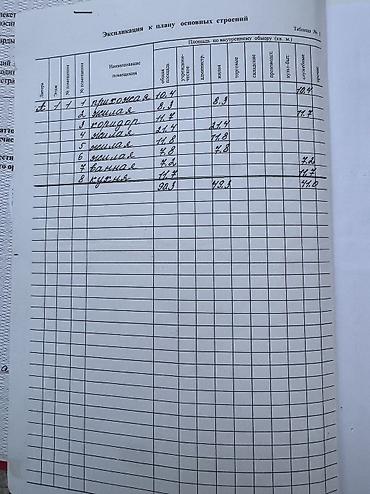 Экспликация к плану основных строений
Таблица №
Площадь по внутреннему обмеру (кв. м.)
Литера Этаж № помещения № помещения Наименование помещения общая площадь учрежденческ. администр. жилая торговые складские производст. культ.-быт. служебные прочие
А 1 1 1 прихожая 10,4 10,4
2 жилая 8,3 8,3
3 коридор 11,7 11,7
4 жилая 21,4 21,4
5 жилая 11,8 11,8
6 жилая 7,8 7,8
7 ванная 7,2 7,2
8 кухня 11,7 11,7
90,3 49,3 41,0